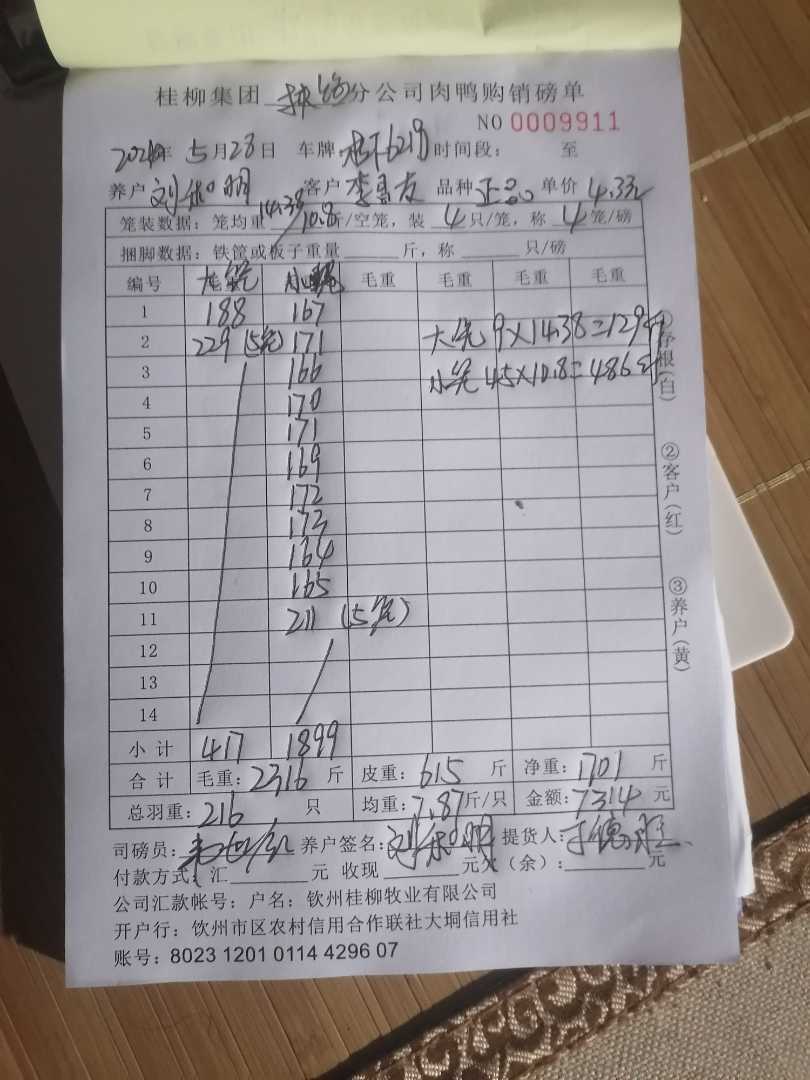 桂柳集团 分公司肉鸭购销磅单
NO 0009911
年 5月28日 车牌 6219 时间段： 至
养户 刘 明 客户 李 友 品种 正品 单价 4.3元
笼装数据：笼均重 14.38/10.8 斤/空笼，装 4 只/笼，称 4 笼/磅
捆脚数据：铁筐或板子重量 斤，称 只/磅
编号 大笼 小笼 毛重 毛重 毛重 毛重
1 188 167
2 229 (5笼) 171 大笼 9×14.38=129斤
3 166 小笼 45×10.8=486斤
4 170
5 171
6 169
7 172
8 173
9 164
10 165
11 211 (5笼)
12
13
14
小计 417 1899
合计 毛重：2316 斤 皮重：615 斤 净重：1701 斤
总羽重：216 只 均重：7.87 斤/只 金额：7314 元
司磅员： 养户签名：刘 明 提货人：
付款方式：汇 元 收现 元欠（余）： 元
公司汇款帐号：户名：钦州桂柳牧业有限公司
开户行：钦州市区农村信用合作联社大垌信用社
账号：8023 1201 0114 4296 07
①存根（白）
②客户（红）
③养户（黄）